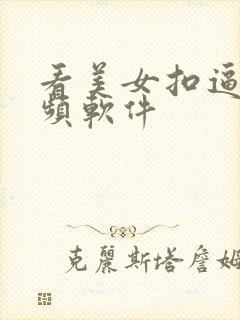 看美女扣逼
頻軟件
克麗斯塔詹姆